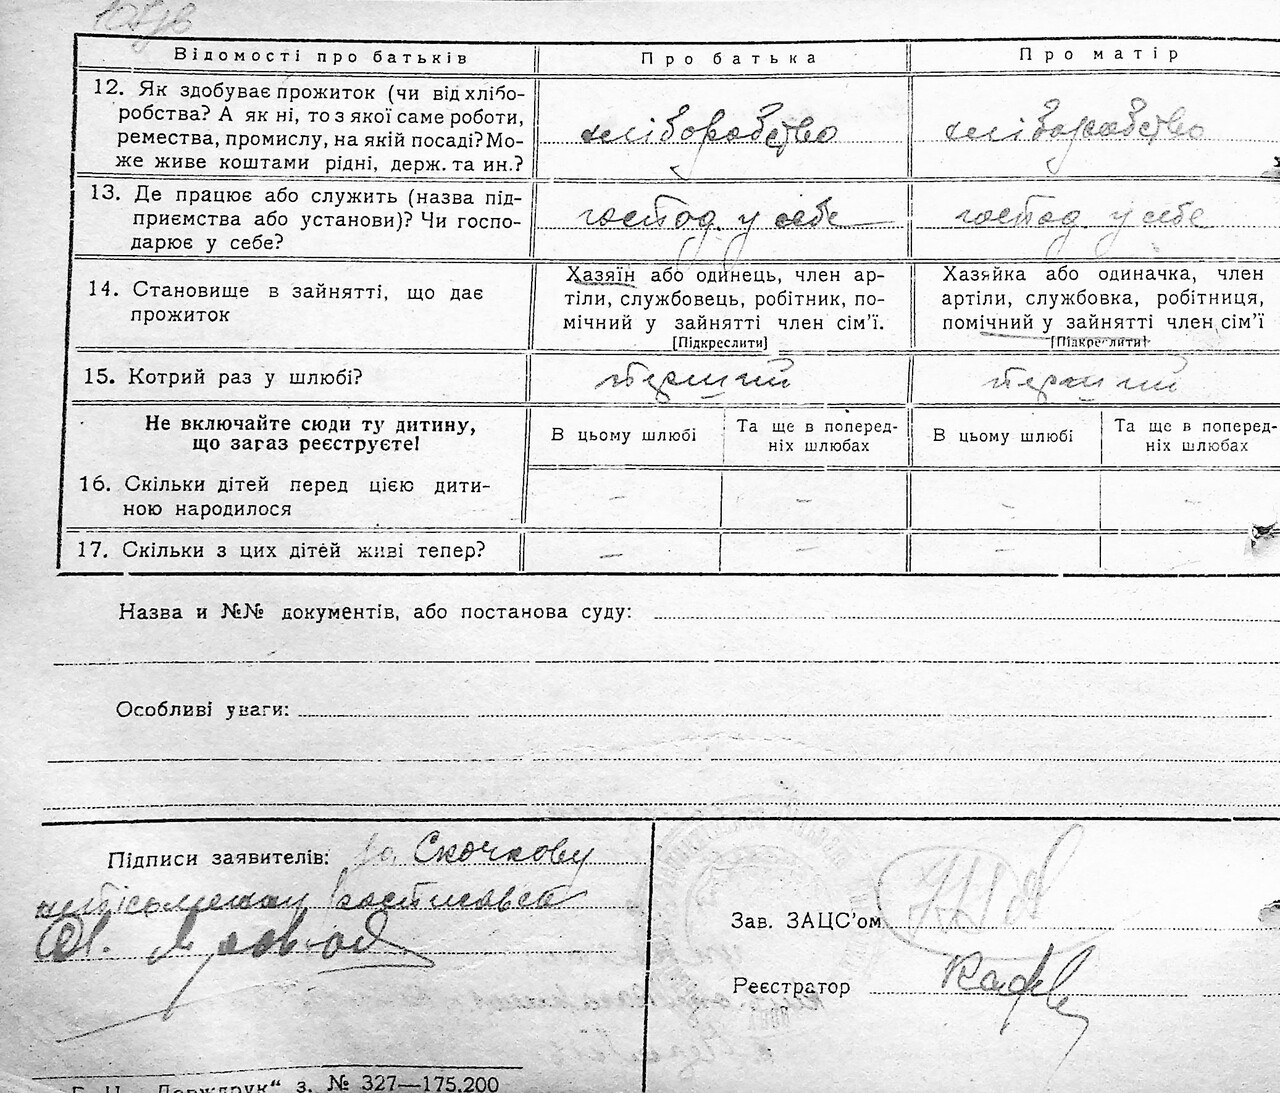 Відомості про батьків
Про батька
Про матір
12. Як здобуває прожиток (чи від хлібо-
робства? А як ні, то з якої саме роботи,
ремества, промислу, на якій посаді? Мо-
же живе коштами рідні, держ. та ин.?
хліборобство
хліборобство
13. Де працює або служить (назва під-
приємства або установи)? Чи госпо-
дарює у себе?
господ. у себе
господ. у себе
14. Становище в зайнятті, що дає
прожиток
Хазяїн або одинець, член ар-
тіли, службовець, робітник, по-
мічний у зайнятті член сім’ї.
[Підкреслити]
Хазяйка або одиначка, член
артіли, службовка, робітниця,
помічний у зайнятті член сім’ї
[Підкреслити]
15. Котрий раз у шлюбі?
перший
перший
Не включайте сюди ту дитину,
що зараз реєструєте!
В цьому шлюбі
Та ще в поперед-
ніх шлюбах
В цьому шлюбі
Та ще в поперед-
ніх шлюбах
16. Скільки дітей перед цією дити-
ною народилося
– – – –
17. Скільки з цих дітей живі тепер?
– – – –
Назва и №№ документів, або постанова суду:
Особливі уваги:
Підписи заявителів: за Скочкову
неписьменну расписався
Зав. ЗАЦС’ом
Реєстратор
Держдрук“ з. № 327—175.200